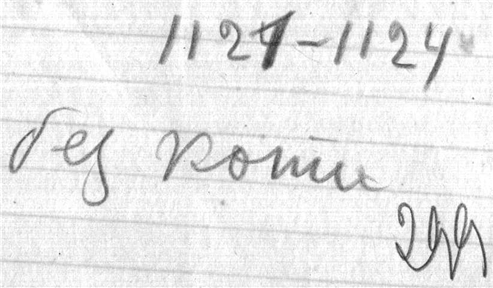 1121-1124
без копии